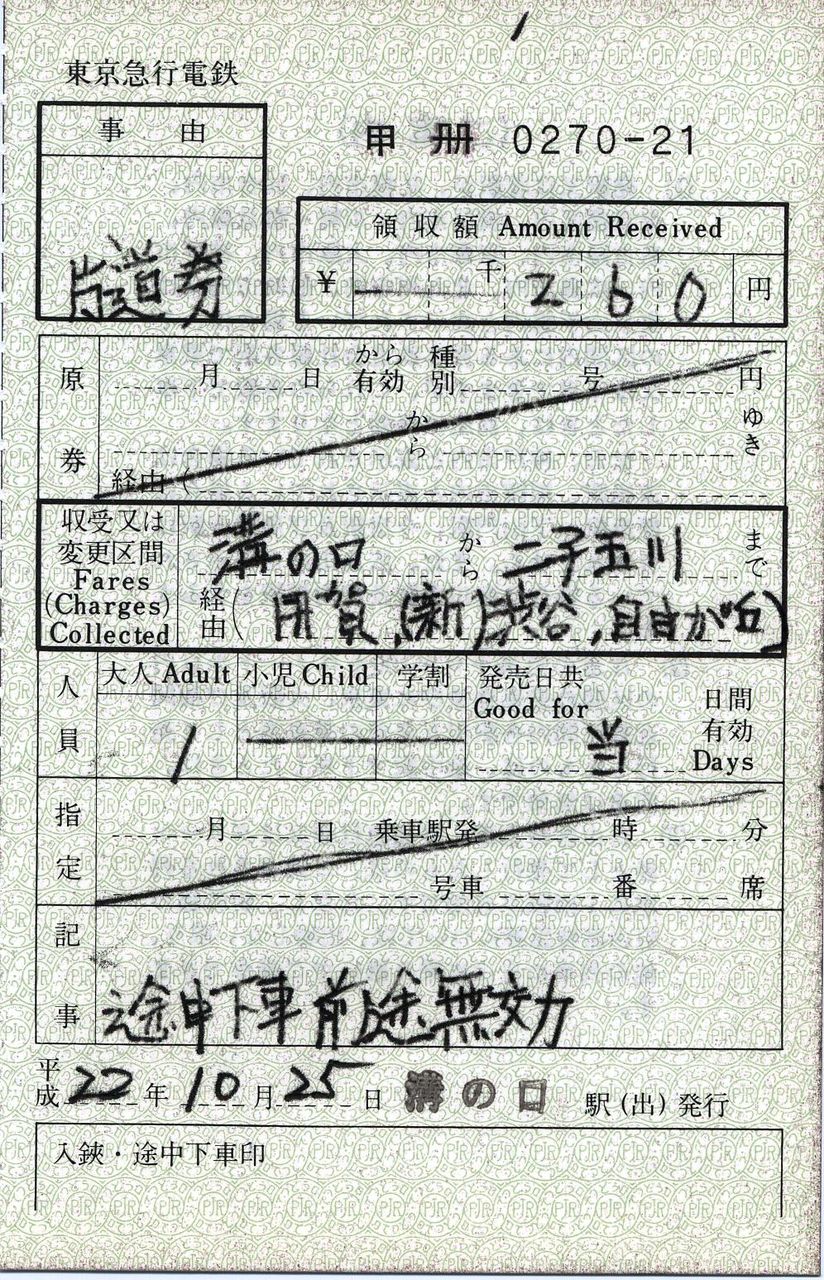 東京急行電鉄
事由
片道券
甲 冊 0270-21
領収額 Amount Received
¥ 千 2 6 0 円
原券
月 日 から有効 種別 号 円
から ゆき
経由(
収受又は変更区間
Fares
(Charges)
Collected
溝の口 から 二子玉川 まで
経由( 田賀,(新)渋谷,自由が丘)
人員
大人 Adult 小児 Child 学割
1
発売日共
Good for 当 日間有効
Days
指定
月 日 乗車駅発 時 分
号車 番 席
記事
途中下車前途無効
平成22年10月25日 溝の口 駅(出)発行
入鋏・途中下車印